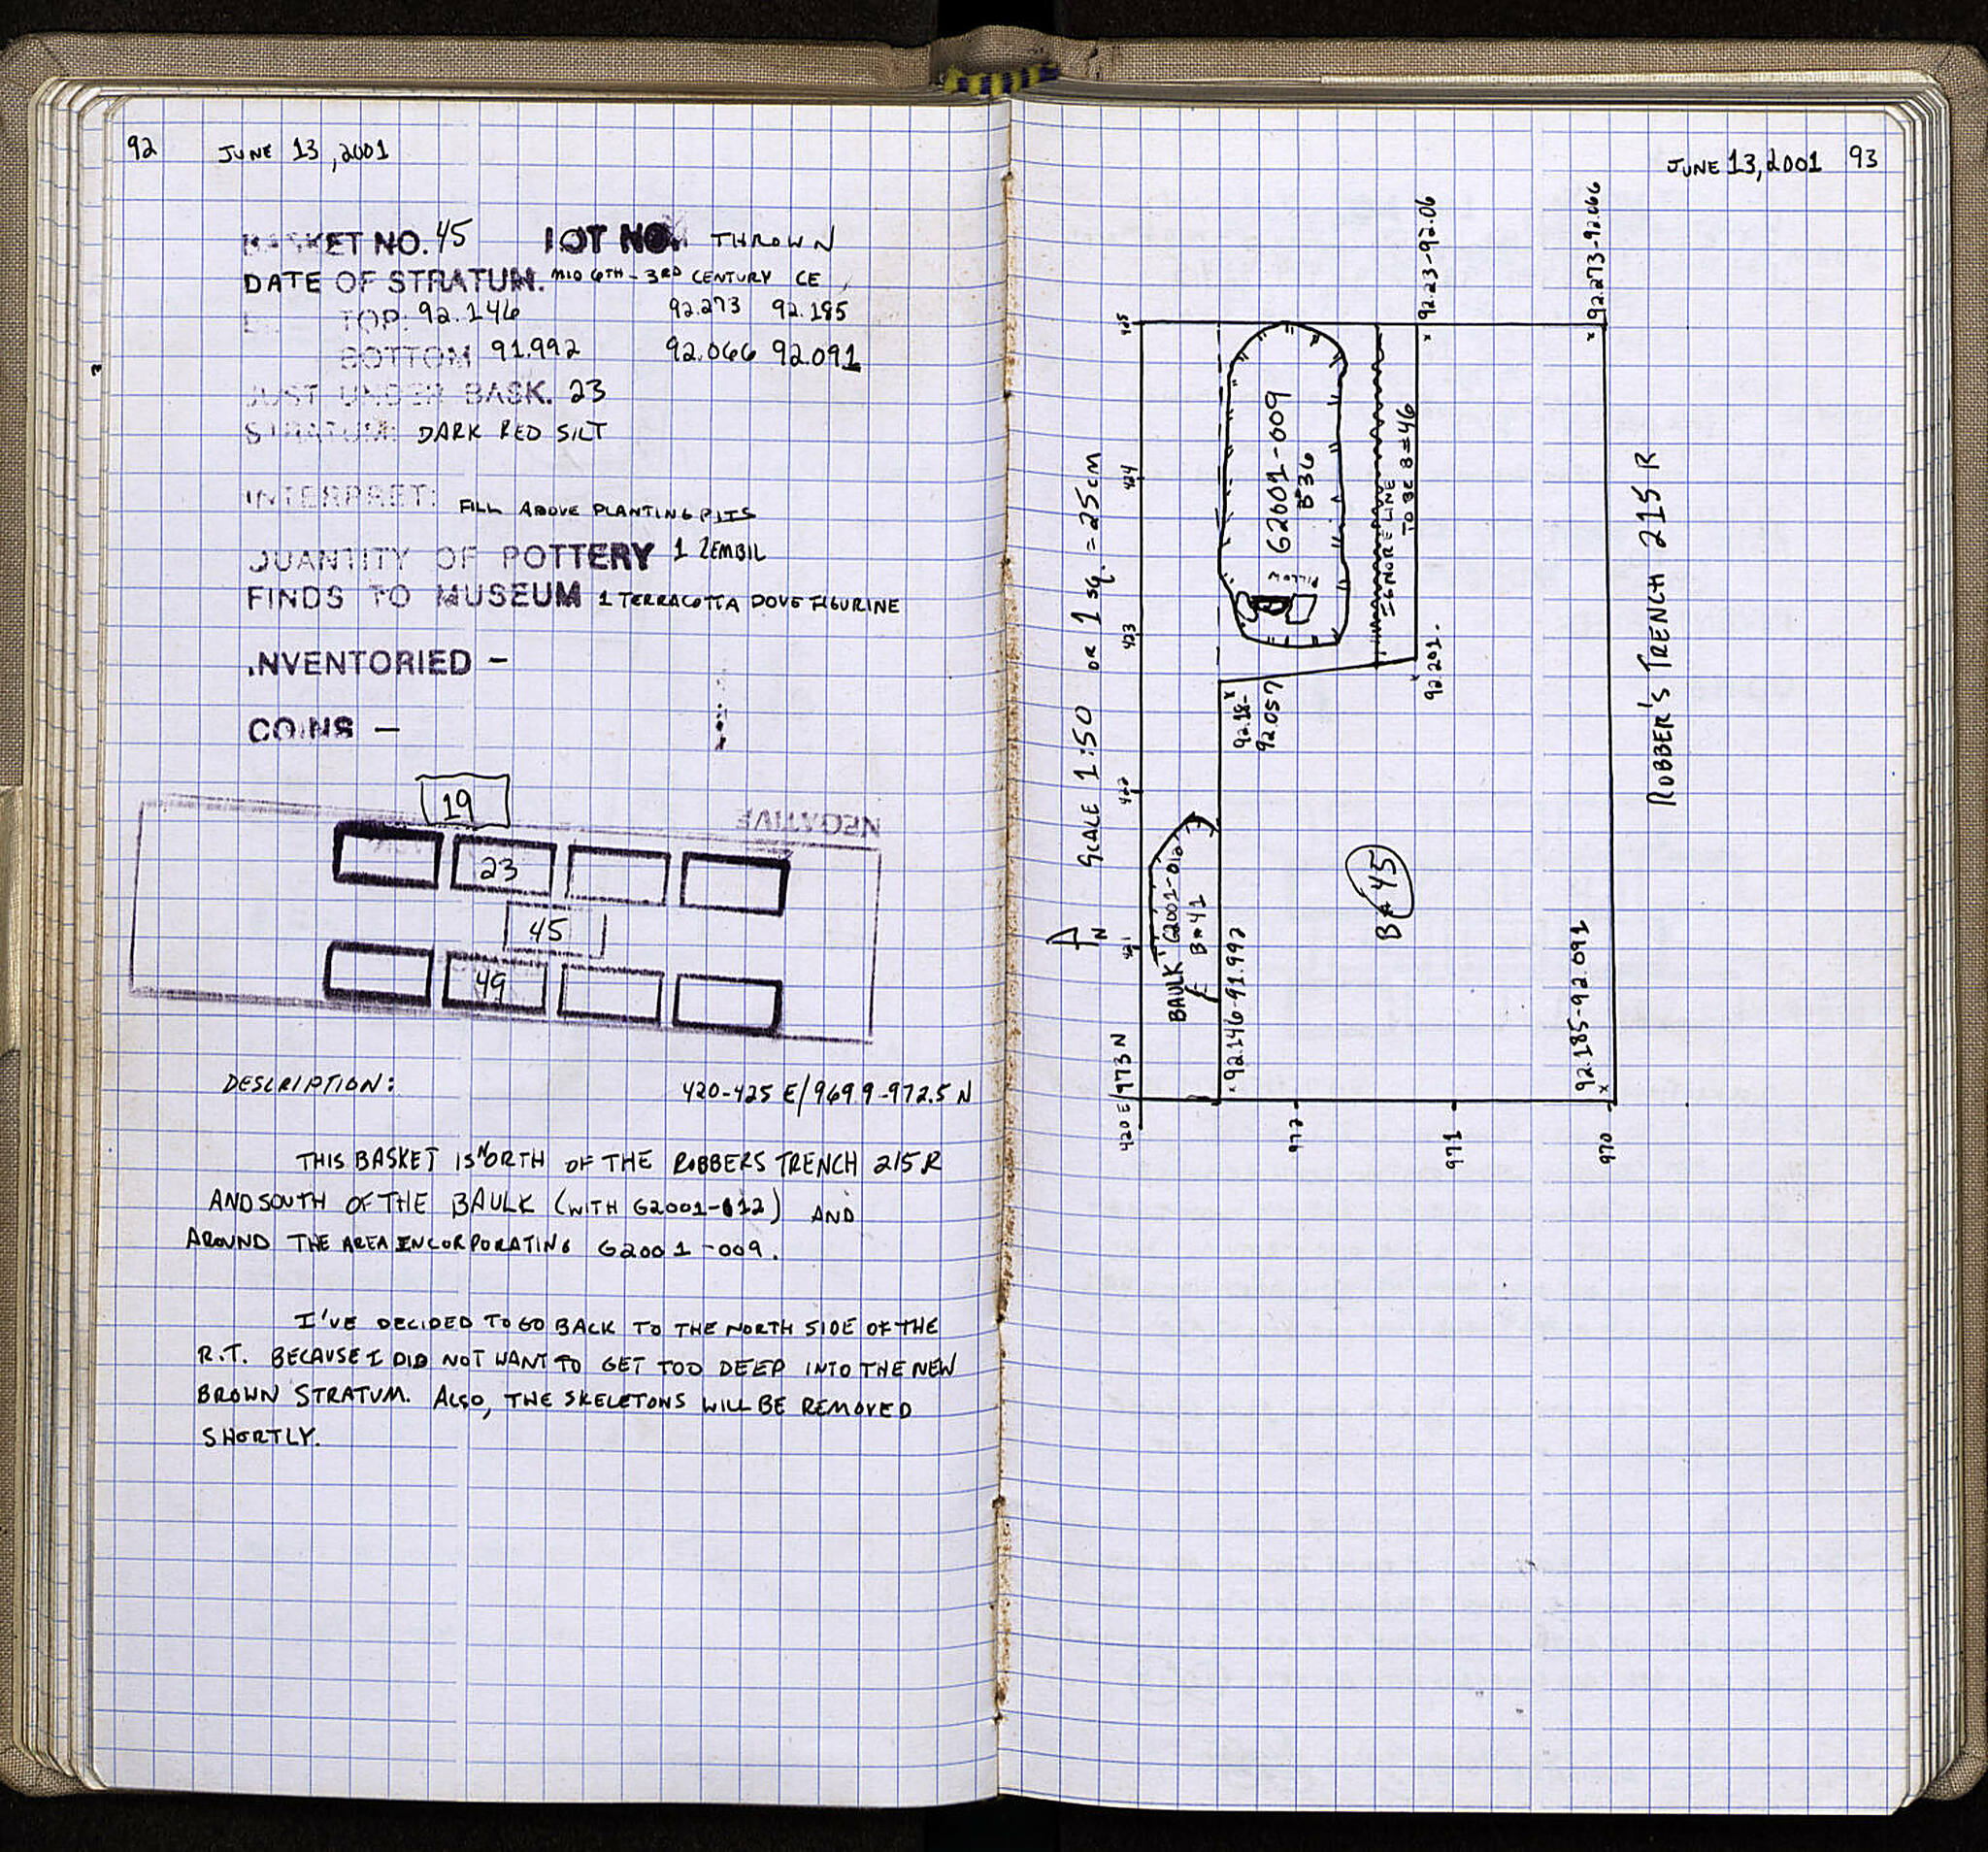 92 JUNE 13, 2001
BASKET NO. 45 LOT NO. THROWN
DATE OF STRATUM. MID 6TH - 3RD CENTURY CE
TOP: 92.146 92.273 92.185
BOTTOM 91.992 92.066 92.091
JUST UNDER BASK. 23
STRATUM: DARK RED SILT
INTERPRET: FILL ABOVE PLANTING PITS
QUANTITY OF POTTERY 1 ZEMBIL
FINDS TO MUSEUM 1 TERRACOTTA DOVE FIGURINE
INVENTORIED -
COINS -
19
NEGATIVE
23
45
49
DESCRIPTION: 420-425 E/969.9-972.5 N
THIS BASKET IS NORTH OF THE ROBBERS TRENCH 215R
AND SOUTH OF THE BAULK (WITH G2001-012) AND
AROUND THE AREA INCORPORATING G2001-009.
I'VE DECIDED TO GO BACK TO THE NORTH SIDE OF THE
R.T. BECAUSE I DID NOT WANT TO GET TOO DEEP INTO THE NEW
BROWN STRATUM. ALSO, THE SKELETONS WILL BE REMOVED
SHORTLY.
JUNE 13, 2001 93
N SCALE 1:50 OR 1 sq. = 25cm
420 E/973 N
421
422
423
424
425
BAULK G2001-012
B#41
G2001-009
B#36
IGNORE LINE
TO BE B#46
92.23-92.06
92.273-92.066
92.201
92.18-
92.057
92.146-91.992
B#45
92.185-92.091
972
971
970
ROBBER'S TRENCH 215 R